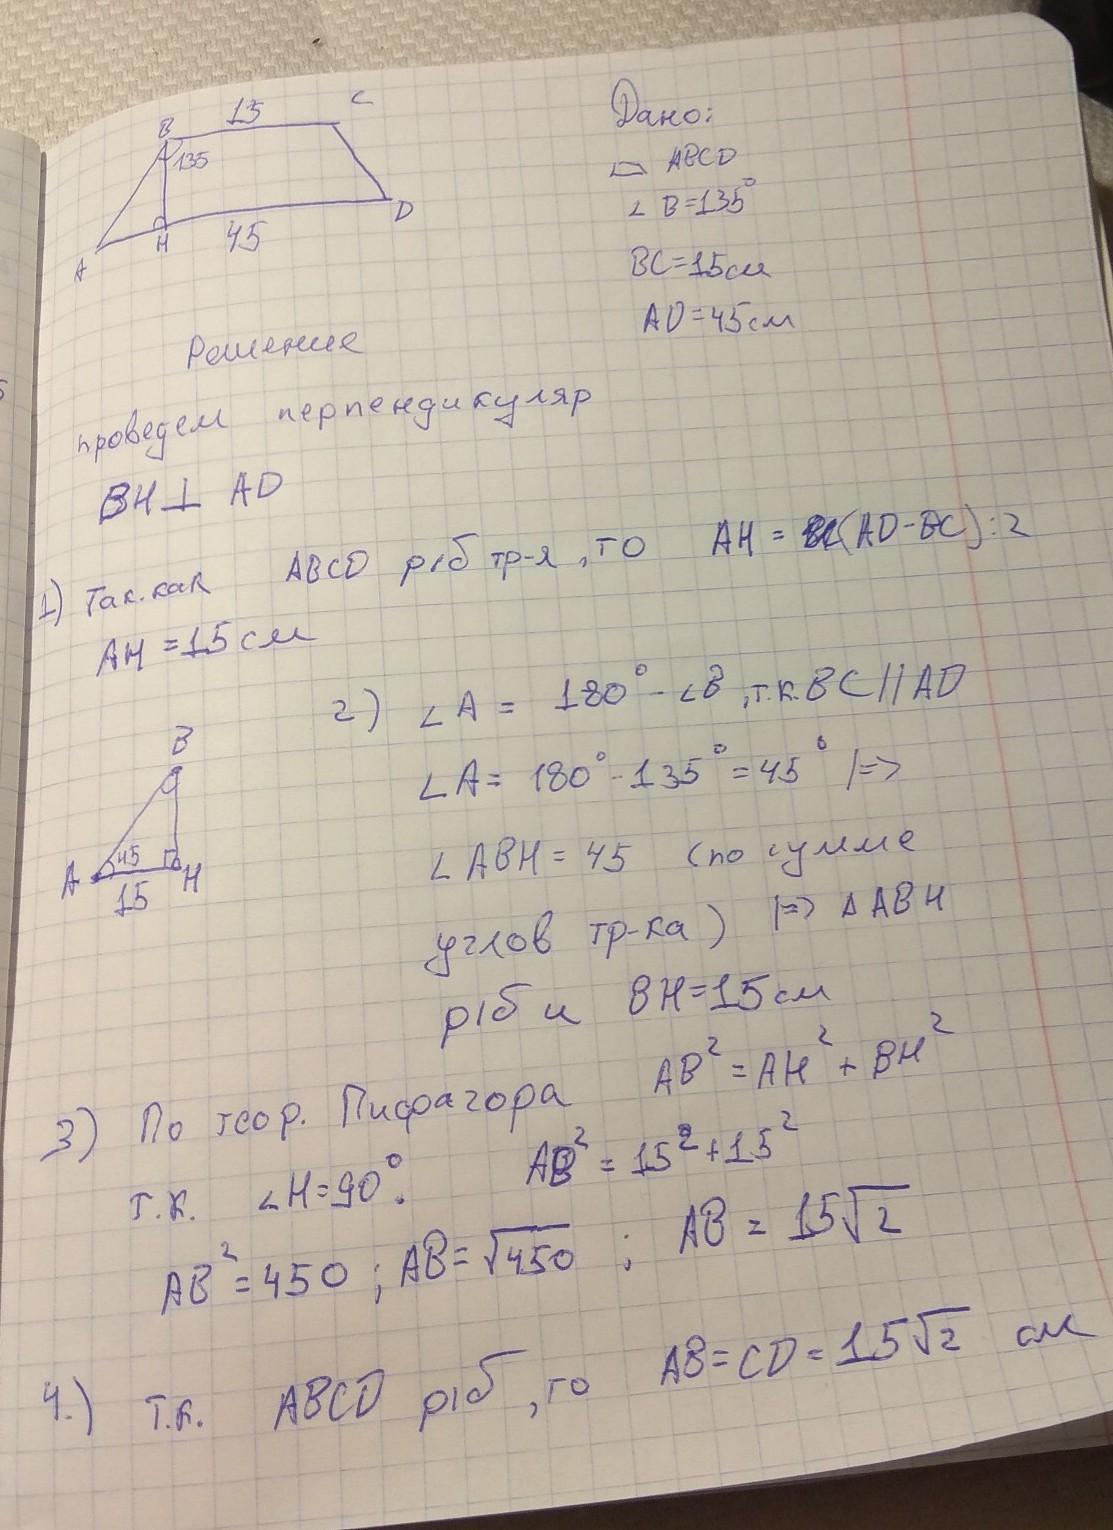 B 15 C
135
A H 45 D
Дано:
▱ ABCD
∠ B=135°
BC=15см
AD=45см
Решение
проведем перпендикуляр
BH⊥ AD
1) Так.как ABCD р/б тр-я, то AH = (AD-BC):2
AH =15см
2) ∠A = 180° - ∠B, т.к. BC//AD
∠A= 180°-135°=45° |=>
∠ABH = 45 (по сумме
углов тр-ка) |=> ΔABH
р/б и BH=15см
B
45
A 15 H
3) По теор. Пифагора AB²=AH²+BH²
т.к. ∠H=90°. AB²=15²+15²
AB²=450; AB=√450; AB = 15√2
4.) т.к. ABCD р/б, то AB=CD=15√2 см